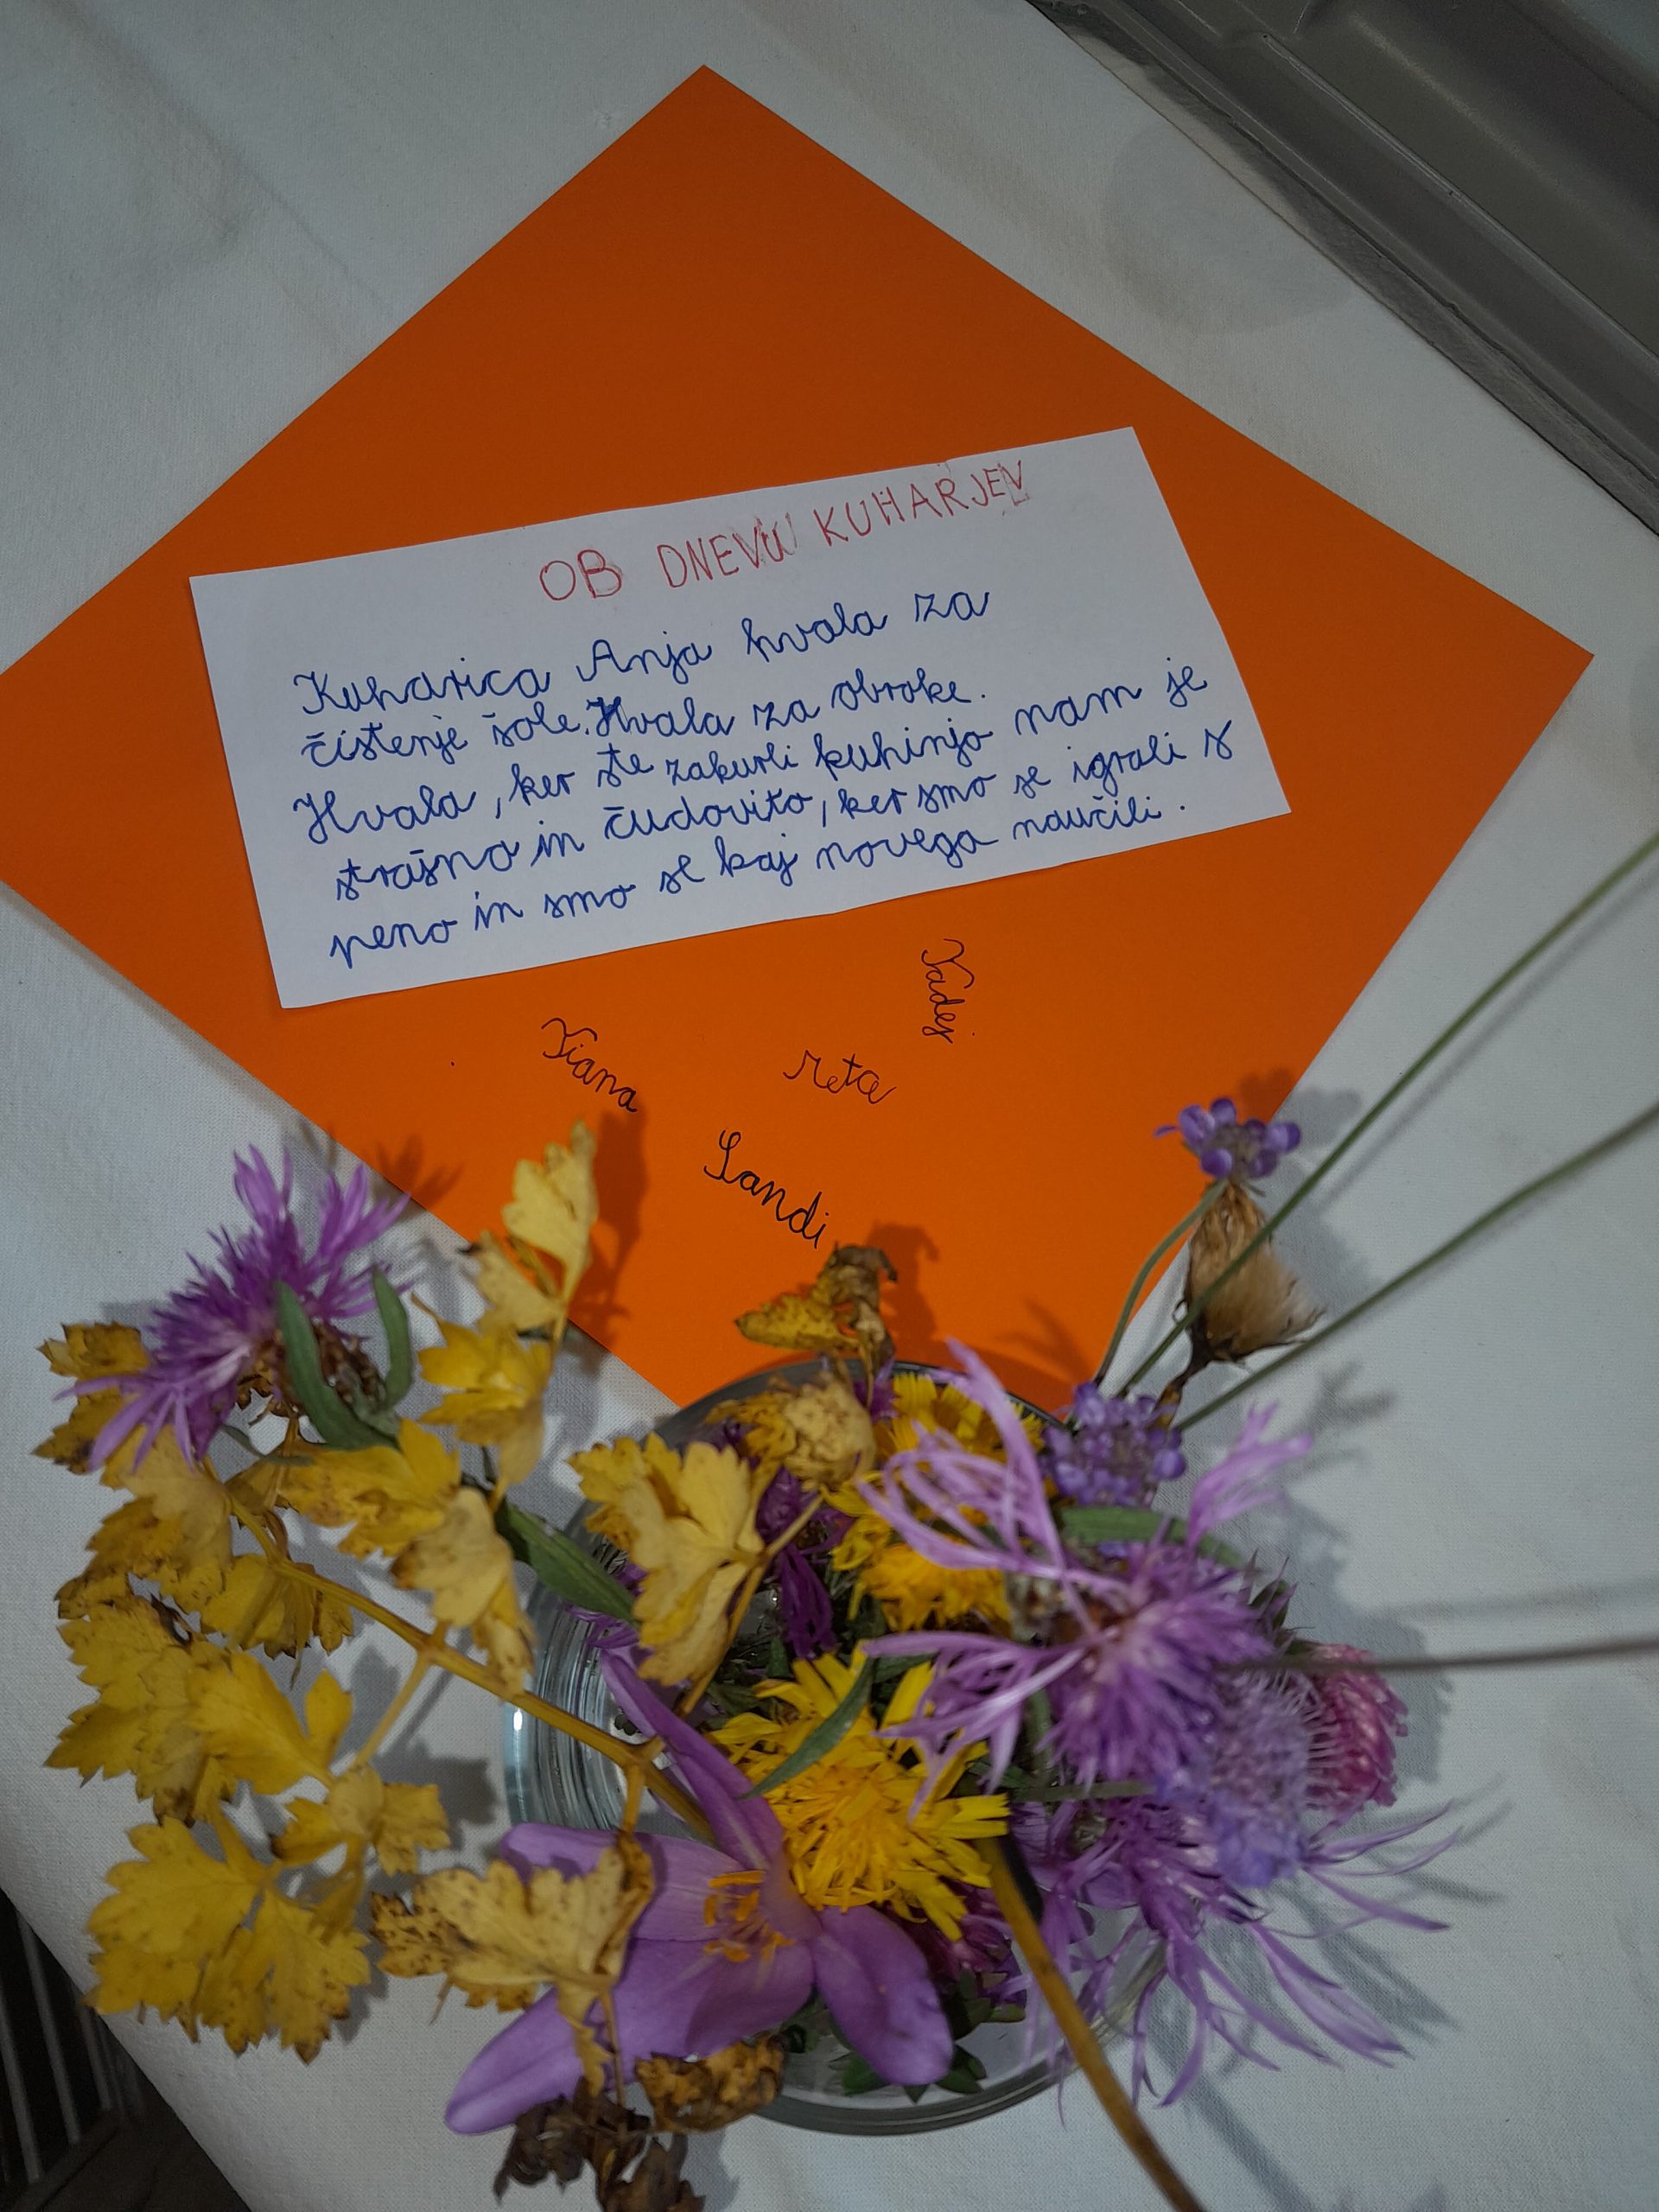 OB DNEVU KUHARJEV
Kuharica Anja hvala za
čistenje šole. Hvala za obroke.
Hvala, ker ste zakurli kuhinjo nam je
strašno in čudovito, ker smo se igrali s
peno in smo se kaj novega naučili.
Tadej
Tiana
reta
Landi